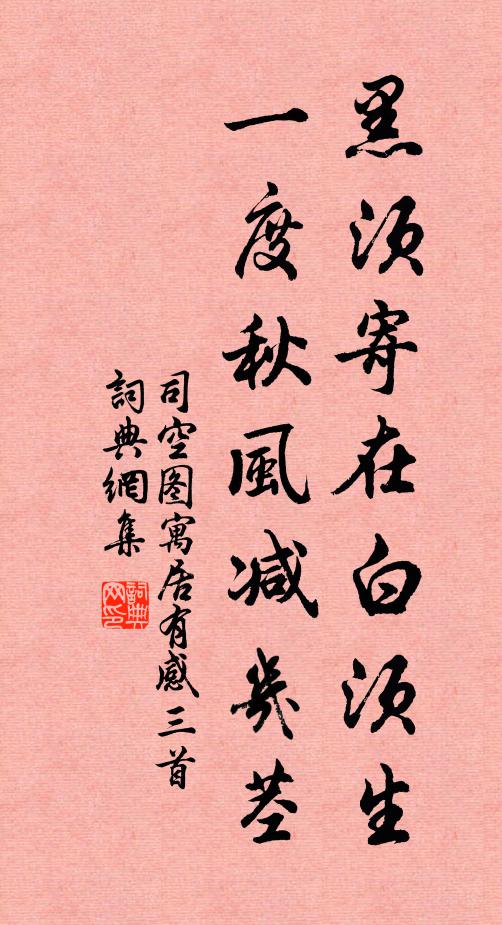 黑须寄在白须生
一度秋風减幾茎
司空图寓居有感三首
詞典網集
詞典
网印